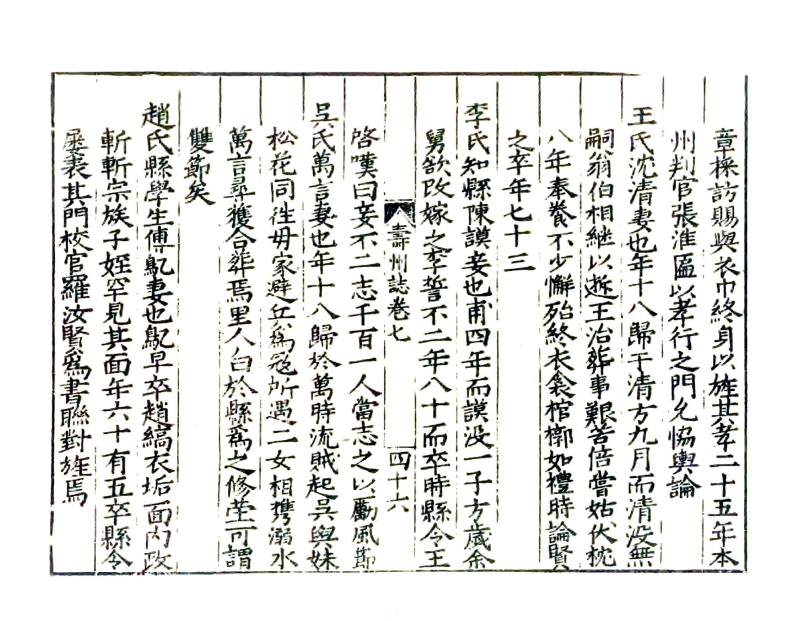 章採訪賜與衣巾終身以旌其孝二十五年本
州判官張淮匾以孝行之門允恊輿論
王氏沈清妻也年十八歸于清方九月而清没無
嗣翁伯相継以逝王治葬事艱苦倍嘗姑伏枕
八年奉養不少懈殆終衣衾棺槨如禮時論賢
之卒年七十三
李氏知縣陳謨妾也甫四年而謨没一子方歲余
舅欲改嫁之李誓不二年八十而卒時縣令王
啓嘆曰妾不二志千百一人當志之以勵風節
吳氏萬言妻也年十八歸於萬時流賊起吳與妹
松花同徃毋家避兵為冦所遇二女相携溺水
萬言尋獲合葬焉里人白於縣為之修塋可謂
雙節矣
趙氏縣學生傅鼽妻也鼽早卒趙縞衣垢面内政
斬斬宗族子姪罕見其面年六十有五卒縣令
屢表其門校官羅汝賢為書聯對旌焉
壽州誌卷七
四十六